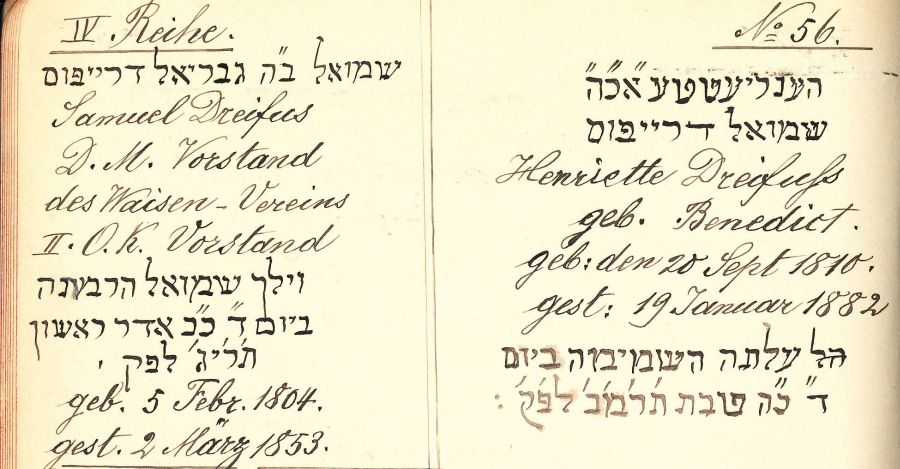 IV Reihe.
שמואל ב״ה גבריאל דרייפוס
Samuel Dreifus
D. M. Vorstand
des Waisen-Vereins
II. O. K. Vorstand
וילך שמואל הרמתה
ביום ד׳ כ״ב אדר ראשון
ת׳ר׳י׳ג׳ לפק.
geb. 5 Febr. 1804.
gest. 2 März 1853.
No 56.
הענריעטטע א״כ״ה״
שמואל דרייפוס
Henriette Dreifuss
geb. Benedict.
geb: den 20 Sept 1810.
gest: 19 Januar 1882
עלתה השמימה ביום
ד״ כ״ה טבת ת׳ר׳מ׳ב׳ לפ׳ק׳: